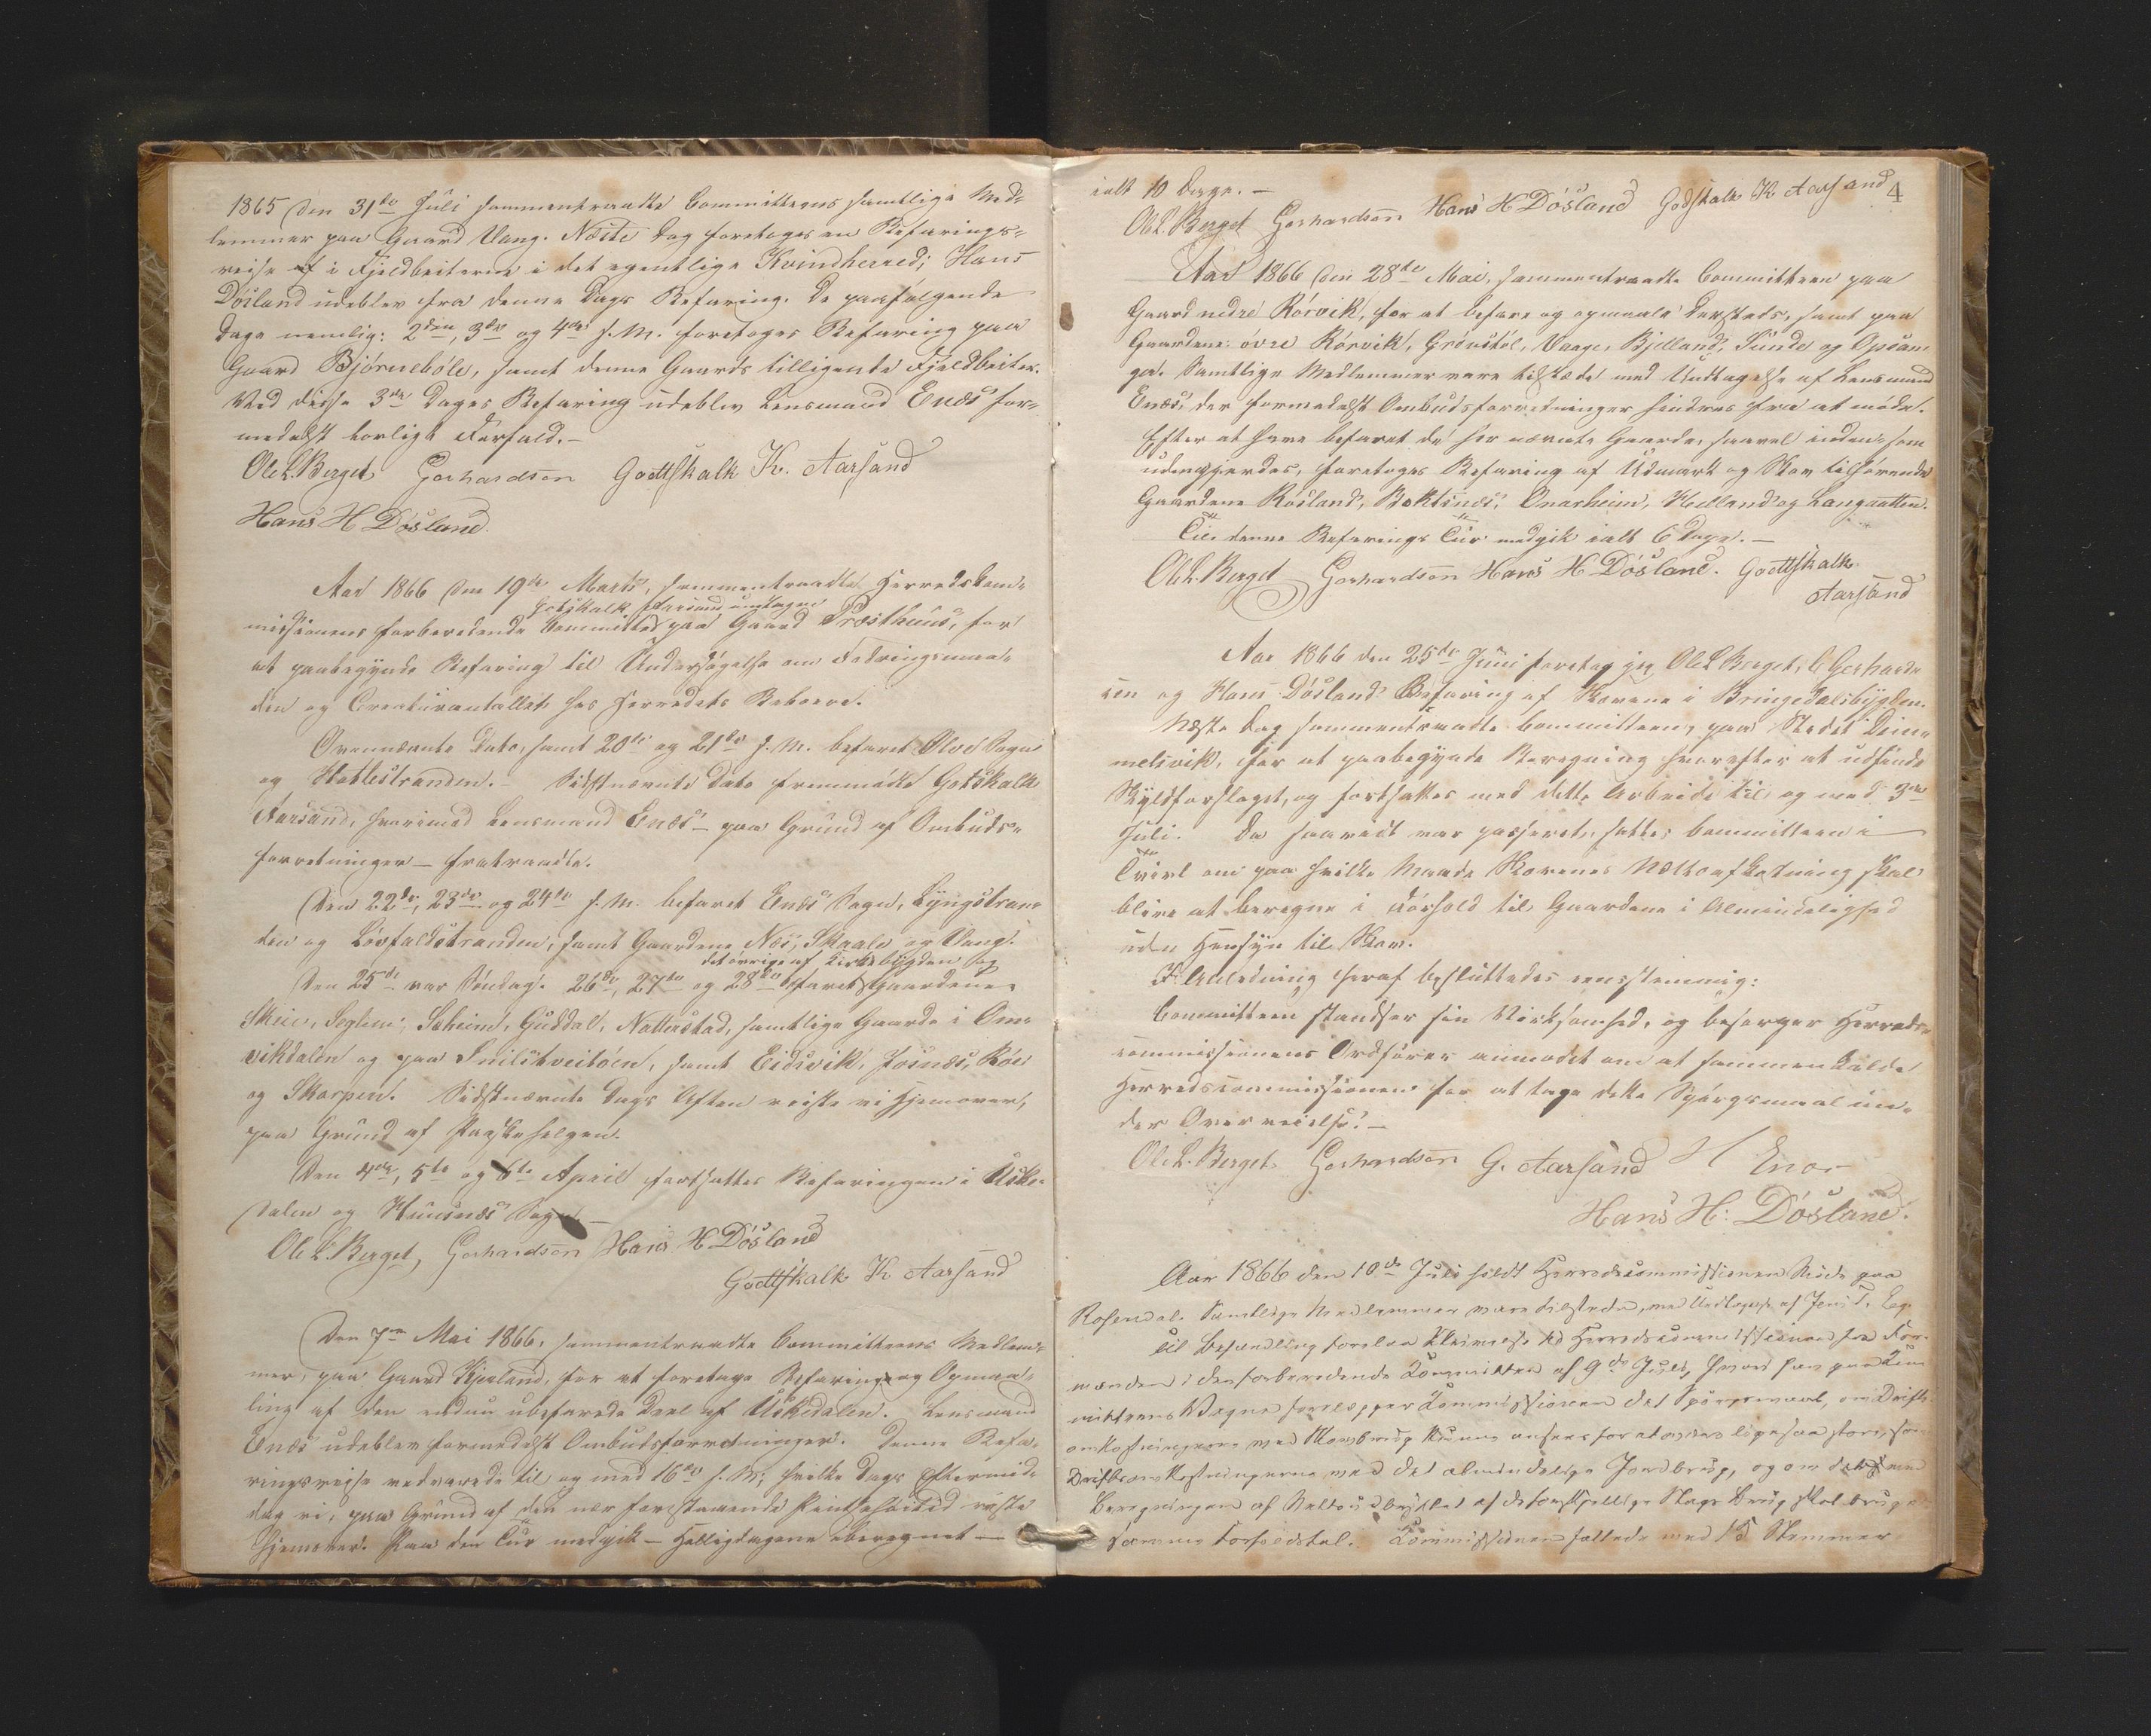 1865 den 31te Juli sammentraadte Committeens samtlige Med-
lemmer paa Gaard Vang. Næste Dag foretoges en Befarings-
reise af i Fjeldbeiterne i det egentlige Kvindherred; Hans
Døsland udeblev fra denne Dags Befaring. De paafølgende
Dage nemlig: 2den, 3die og 4de s. M. foretoges Befaring paa
Gaard Bjørnebøle, samt denne Gaards tilligende Fjeldbeiter.
Ved disse 3de Dages Befaring udeblev Lensmand Enæs for-
medelst lovligt Forfald.-
Ole L. Berget Gerhardsen Godtskalk K. Aarsand
Hans H Døsland.
Aar 1866 den 19de Marts, sammentraadte Herredskom-
Gotskalk Aarsand undtagen
missionens forberedende Committee paa Gaard Præsthuus, for
at paabegynde Befaring til Undersøgelse om Fodringsmaa-
den og Creaturantallet hos Herredets Beboere.
Ovennævnte Dato, samt 20de og 21de s. M. befaret Ølve Sogn
og Hatlestranden.- Sidstnævnte Dato fremmødte Gotskalk
Aarsand, hvorimod Lensmand Enæs - paa Grund af Ombuds-
forretninger - fratraadte.
Den 22de, 23de og 24de s. M. befaret Enæs Sogn, Lyngstran-
den og Løvfaldstranden, samt Gaardene Næs, Skaale og Vang.
det øvrige af Kirkebygden og
Den 25de var Søndag. 26de, 27de og 28de befaret Gaardene
Skeie, Seglem, Sæheim, Guddal, Natterstad, samtlige Gaarde i Om-
vikdalen og paa Snilstveitøen, samt Eidsvik, Josnæs, Røe
og Skorpen. Sidstnævnte Dags Aften reiste vi Hjemover,
paa Grund af Paaskehelgen.
Den 4de, 5te og 6te April fortsattes Befaringen i Uske-
dalen og Huusnæs Sogn.-
Ole L. Berget, Gerhardsen Hans H Døsland
Godtskalk K Aarsand
Den 7de Mai 1866, sammentraadte Committeens Medlem-
mer, paa Gaard Kjerland, for at foretage Befaring og Opmaa-
ling af den endnu ubefarede Deel af Uskedalen. Lensmand
Enæs udeblev formedelst Ombudsforretninger. Denne Befa-
ringsreise vedvarede til og med 16de s. M; hvilke Dags Eftermid-
dag vi, paa Grund af den nær forestaaende Pintsehøitid reiste
Hjemover. Paa den Tur medgik - Helligdagene uberegnet -
ialt 10 Dage.-
4
Ole L. Berget Gerhardsen Hans H Døsland Godskalk K Aarsand
Aar 1866 den 28de Mai, sammentraadte Committeen paa
Gaard nedre Rørvik, for at befare og opmaale dersteds, samt paa
Gaardene: øvre Rørvik, Grøvstøl, Vaage, Bjelland, Sunde og Opsan-
ger. Samtlige Medlemmer vare tilstæde med Undtagelse af Lensmand
Enæs, der formedelst Ombudsforretninger hindres fra at møde.
Efter at have befaret de her nævnte Gaarde, saavel inden- som
udengjerdes, foretoges Befaring af Udmark og Skov tilhørende
Gaardene Røsland, Boktsnæs, Onarheim, Helland og Langaatten.
Til denne Befarings Tur medgik ialt 6 Dage.-
Ole L. Berget Gerhardsen Hans H Døsland. Godtskalk
Aarsand
Aar 1866 den 25de Juni foretog jeg Ole L Berget, C Gerhard-
sen og Hans Døsland Befaring af Skovene i Bringedalsbygden.
Næste Dag sammentraadte Committeen, paa Stedet Dim-
melsvik, for at paabegynde Beregning hvorefter at udfinde
Skyldforslaget, og fortsattes med dette Arbeide til og med 3de
Juli. Da saavidt var passeret, sattes Committeen i
Tvivl om paa hvilke Maade Skovenes Nettoafkastning skal
blive at beregne i Forhold til Gaardene i Almindelighed
uden Hensyn til Skov.
I Anledning heraf besluttedes eensstemmig:
Committeen standser sin Virksomhed, og besørger Herreds-
commissionens Ordfører anmodet om at sammenkalde
Herredscommissionen for at tage dette Spørgsmaal un-
der Overveielse.-
Ole L. Berget Gerhardsen G. Aarsand H Enæs
Hans H. Døsland.
Aar 1866 den 10de Juli holdt Herredscommissionen Møde paa
Rosendal. Samtlige Medlemmer vare tilstede, med Undtagelse af
Til Behandling forelaa Skrivelse til Herredscommissionen fra For-
manden i den forberedende Committee af 9de Juli, hvori han paa Com-
mitteens Vegne forelægger Kommissionen det Spørgsmaal, om Drifts-
omkostningerne ved Skovbrug kunne ansees for at være ligesaa store, som
Driftsomkostningerne ved det almindelige Jordbrug, og om der ved
Beregningen af Nettoudbyttet af de forskjellige Slags Brug skal bruges
samme Forholdstal. Kommissionen fattede med 15 Stemmer